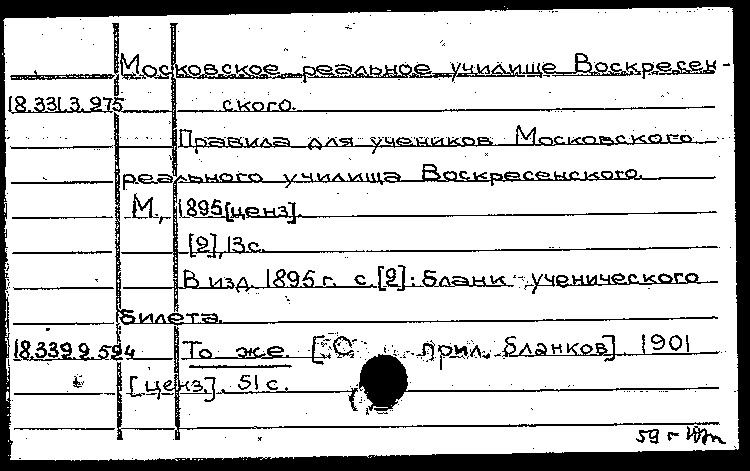 Московское реальное училище Воскресен-
18.331.3.975 ского.
Правила для учеников Московского
реального училища Воскресенского.
М., 1895 [ценз].
[2], 13 с.
В изд. 1895 г. с. [2]: бланк ученического
билета.
18.339.9.594 То же. [С прил. бланков] 1901
[ценз.]. 51 с.
59 г